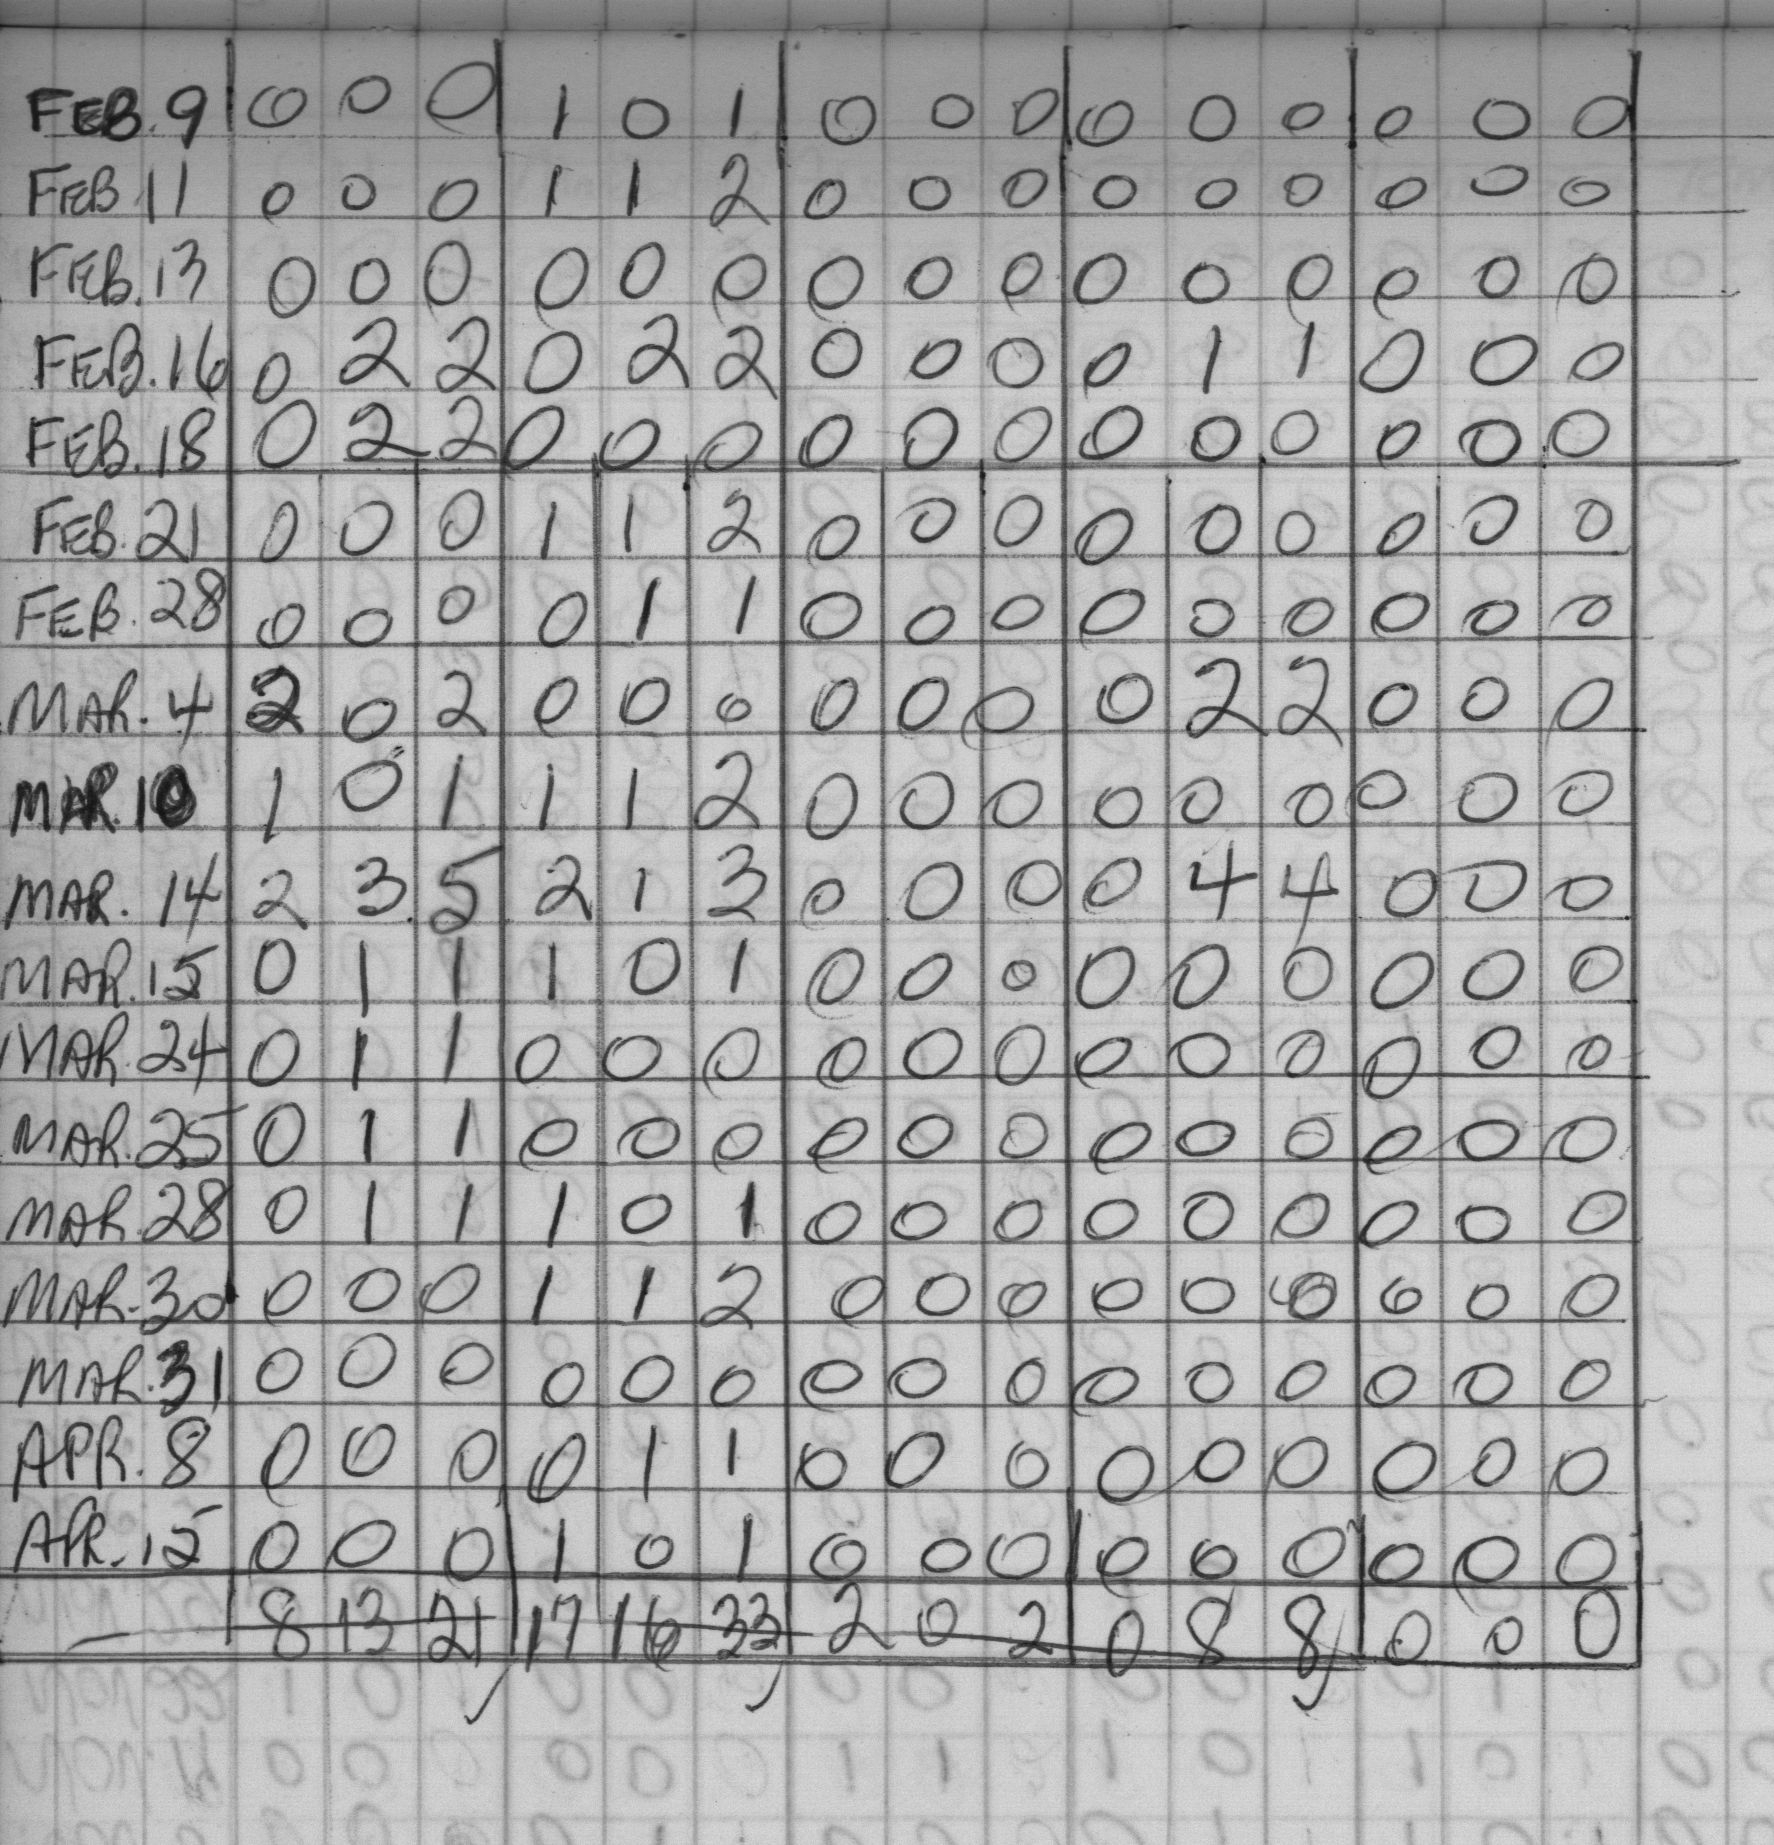 FEB. 9 0 0 0 1 0 1 0 0 0 0 0 0 0 0 0
FEB. 11 0 0 0 1 1 2 0 0 0 0 0 0 0 0 0
FEB. 13 0 0 0 0 0 0 0 0 0 0 0 0 0 0 0
FEB. 16 0 2 2 0 2 2 0 0 0 0 1 1 0 0 0
FEB. 18 0 2 2 0 0 0 0 0 0 0 0 0 0 0 0
FEB. 21 0 0 0 1 1 2 0 0 0 0 0 0 0 0 0
FEB. 28 0 0 0 0 1 1 0 0 0 0 0 0 0 0 0
MAR. 4 2 0 2 0 0 0 0 0 0 0 2 2 0 0 0
MAR. 10 1 0 1 1 1 2 0 0 0 0 0 0 0 0 0
MAR. 14 2 3 5 2 1 3 0 0 0 0 4 4 0 0 0
MAR. 15 0 1 1 1 0 1 0 0 0 0 0 0 0 0 0
MAR. 24 0 1 1 0 0 0 0 0 0 0 0 0 0 0 0
MAR. 25 0 1 1 0 0 0 0 0 0 0 0 0 0 0 0
MAR. 28 0 1 1 1 0 1 0 0 0 0 0 0 0 0 0
MAR. 30 0 0 0 1 1 2 0 0 0 0 0 0 0 0 0
MAR. 31 0 0 0 0 0 0 0 0 0 0 0 0 0 0 0
APR. 8 0 0 0 0 1 1 0 0 0 0 0 0 0 0 0
APR. 15 0 0 0 1 0 1 0 0 0 0 0 0 0 0 0
— 8 13 21 17 16 33 2 0 2 0 8 8 0 0 0